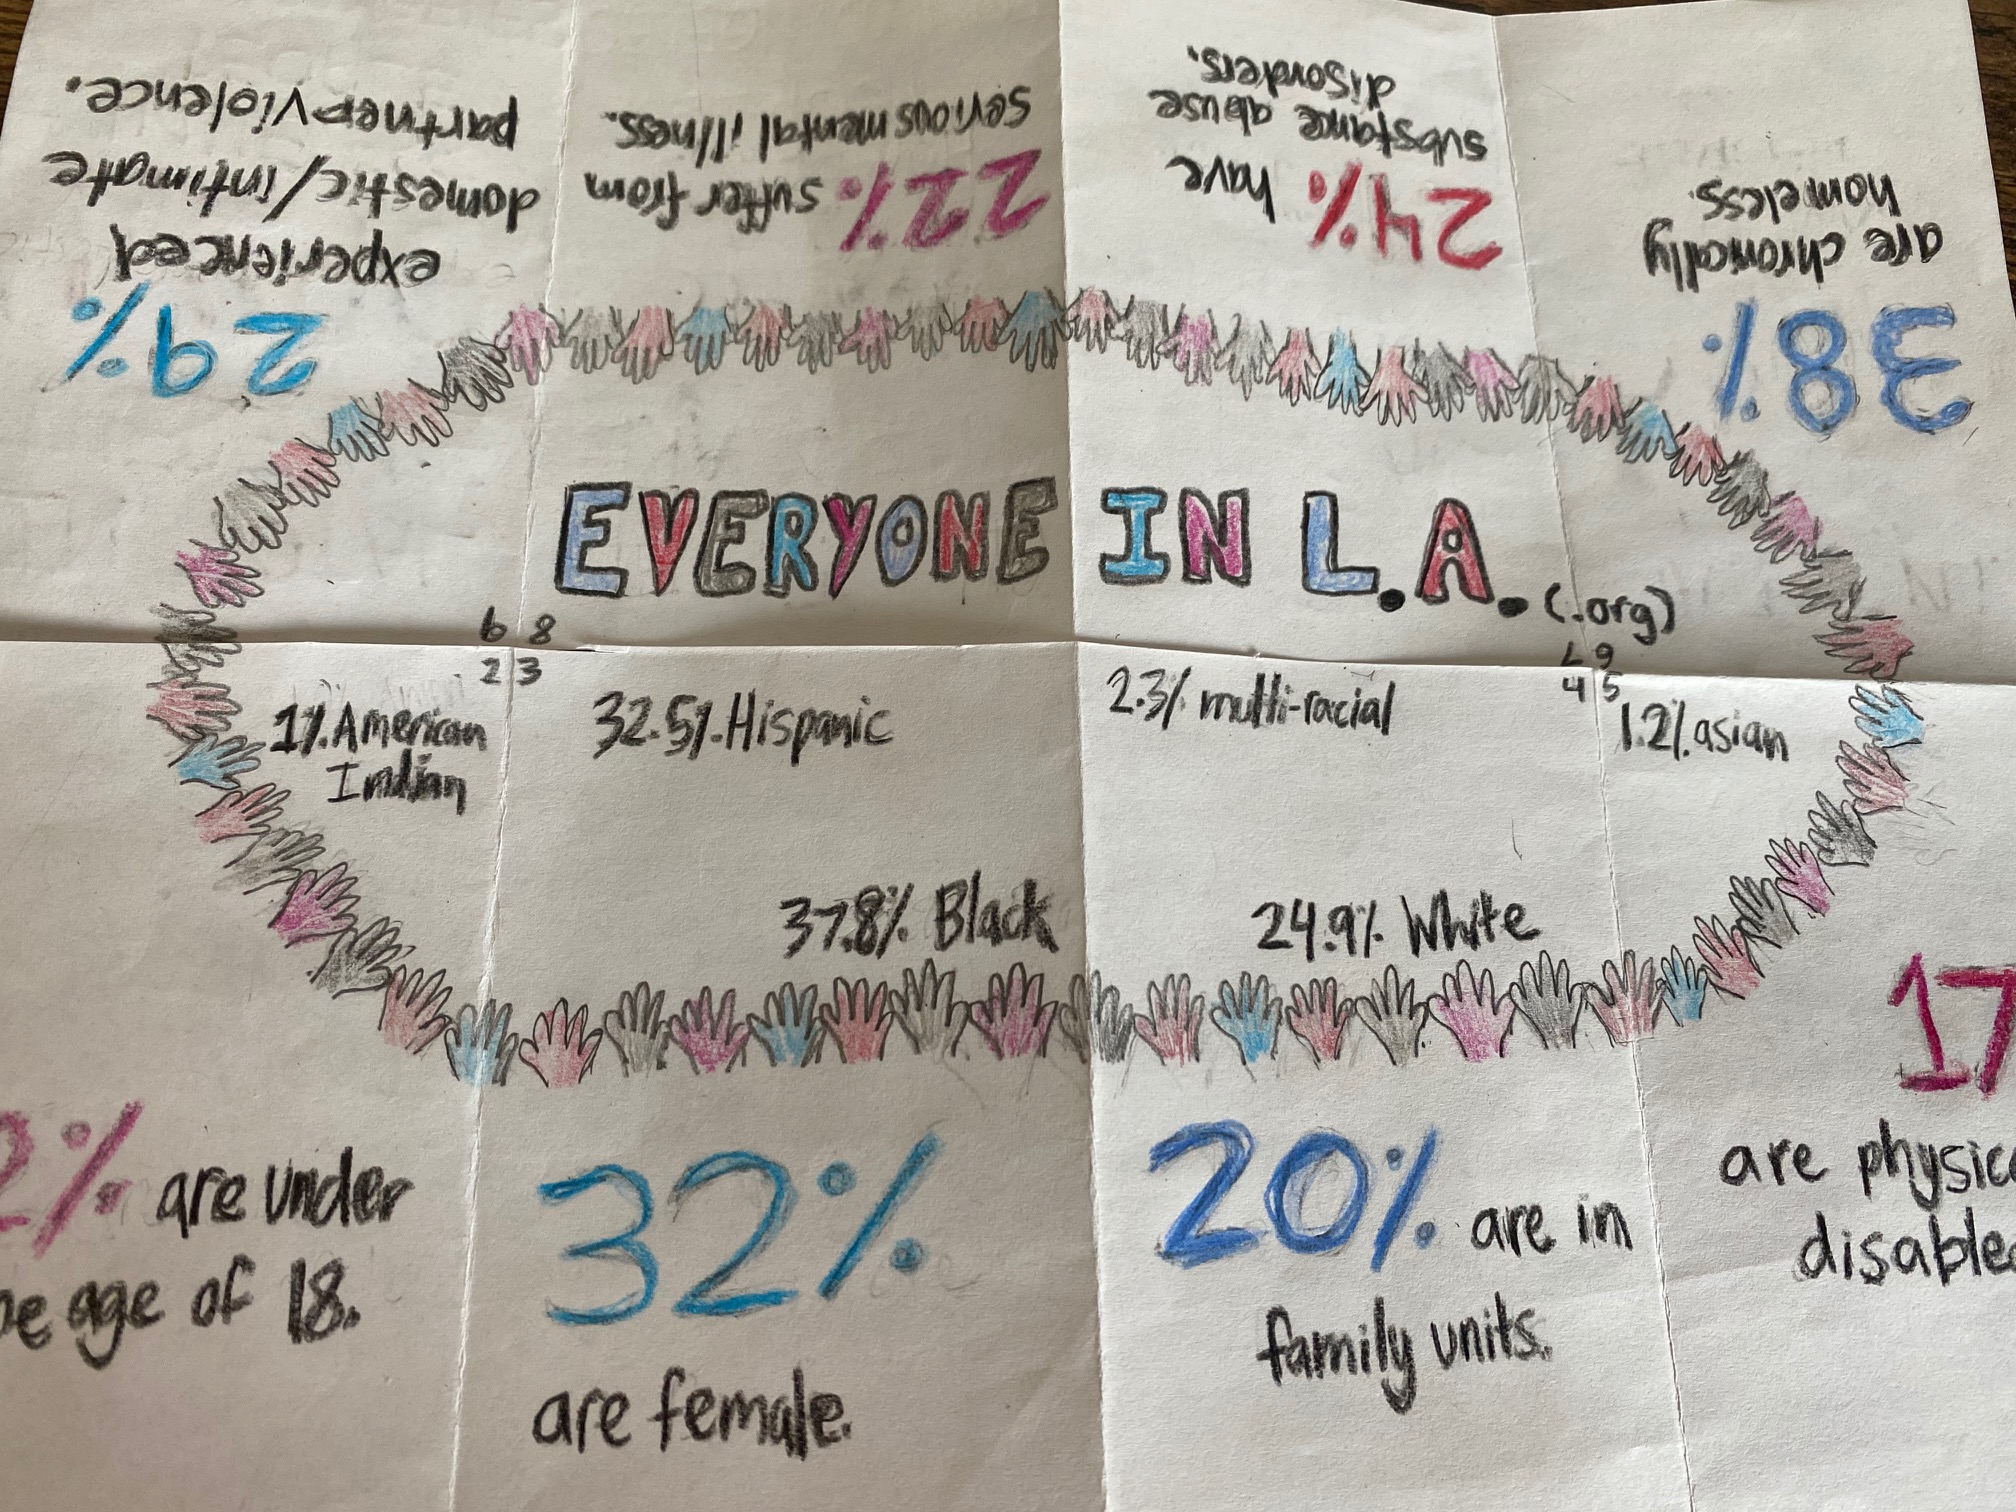 29%
experienced
domestic/intimate
partner violence.
22% suffer from
serious mental illness.
24% have
substance abuse
disorders.
38%
are chronically
homeless.
EVERYONE IN L.A. (.org)
6 8
2 3
7 9
4 5
1% American
Indian
32.5% Hispanic
2.3% multi-racial
1.2% asian
37.8% Black
24.9% White
2% are under
age of 18.
32%
are female.
20% are in
family units.
17
are